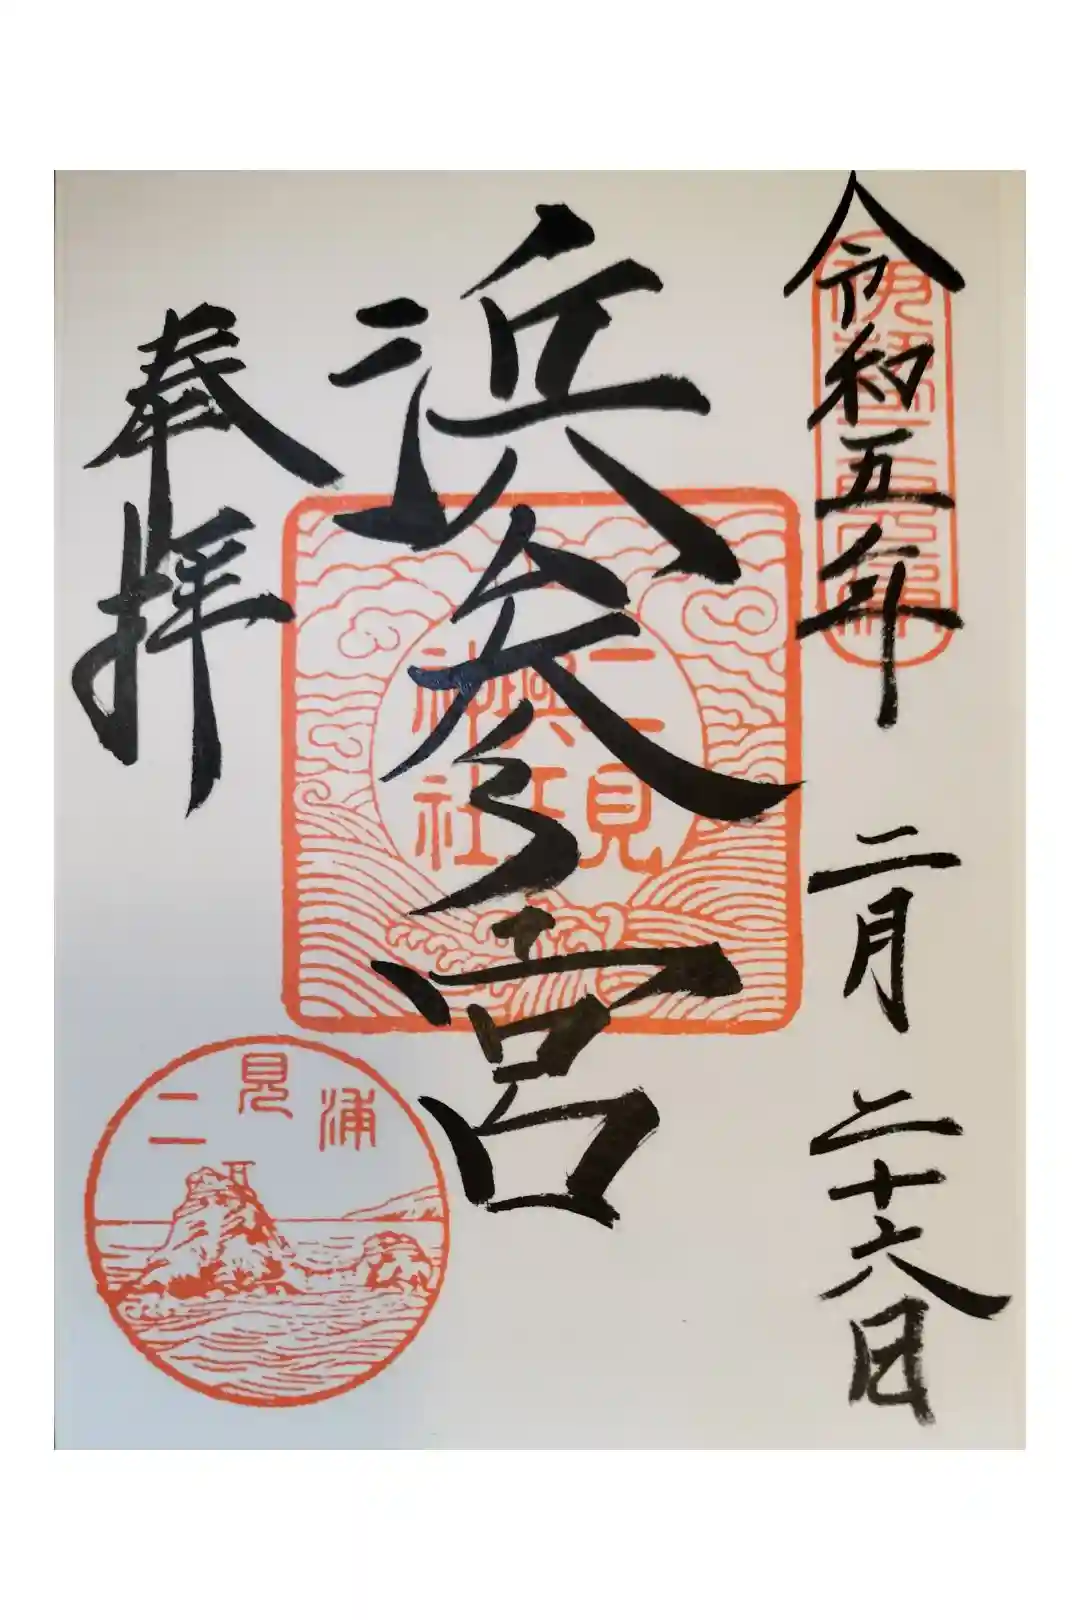 令和五年 二月 二十六日
伊勢二見浦
浜参宮
二見
興玉
神社
奉拝
二見浦